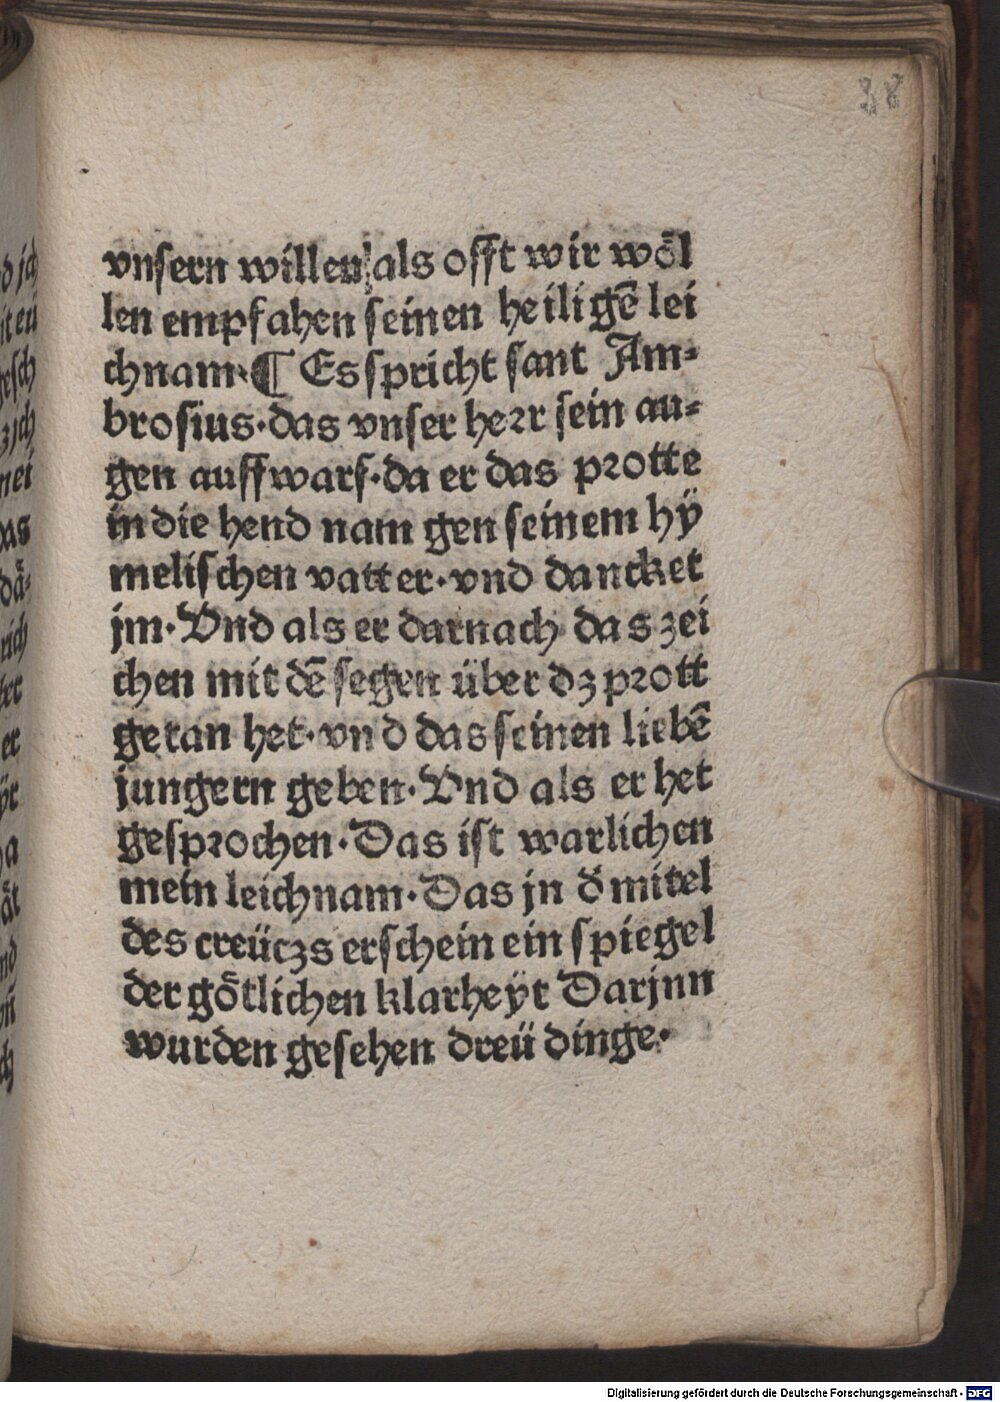 38
vnsern willen als offt wir wöl
len empfahen seinen heiligē lei
chnam·¶ Es spricht sant Am⸗
brosius·das vnser herr sein au⸗
gen auffwarf·da er das protte
in die hend nam gen seinem hÿ
melischen vatter·vnd dancket
jm·Vnd als er darnach das zei
chen mit dē segen über dz prott
getan het·vnd das seinen liebē
jungern geben·Vnd als er het
gesprochen·Das ist warlichen
mein leichnam·Das jn d̄ mitel
des creüczs erschein ein spiegel
der götlichen klarheÿt Darjnn
wurden gesehen dreü dinge·
Digitalisierung gefördert durch die Deutsche Forschungsgemeinschaft - DFG